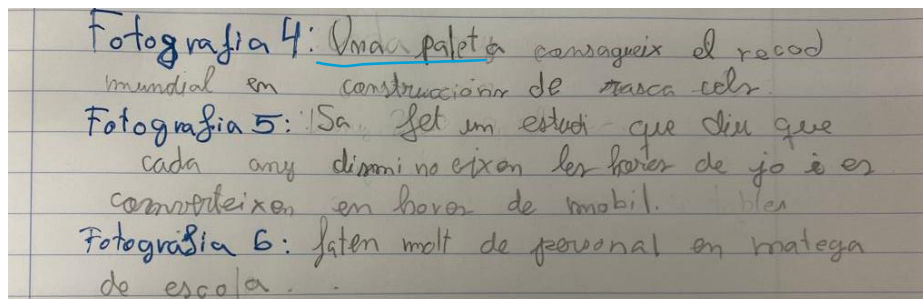 Fotografia 4: Unda paleta consagueix el recod
mundial en construcciónin de rasca cels.
Fotografia 5: Sa fet un estudi que diu que
cada any dismi no eixen les hores de jo i es
converteixen en hores de mobil.
Fotografia 6: faten molt de personal en matega
de escola.